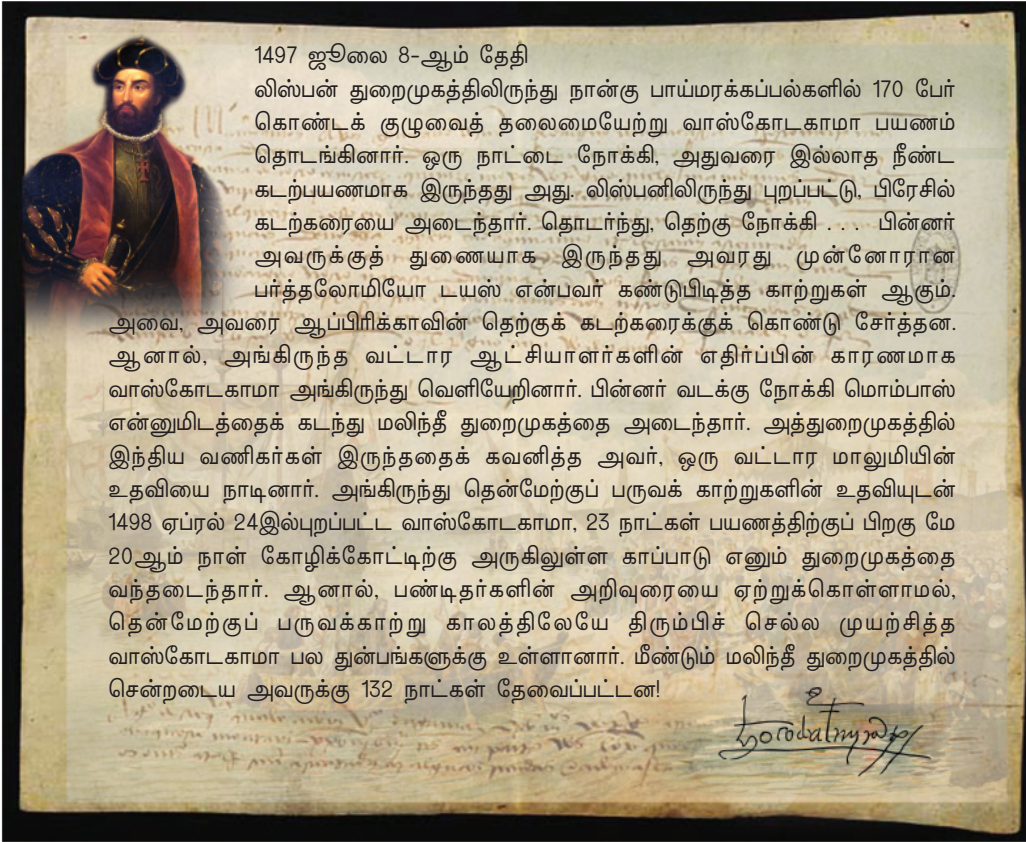 1497 ஜூலை 8-ஆம் தேதி
லிஸ்பன் துறைமுகத்திலிருந்து நான்கு பாய்மரக்கப்பல்களில் 170 பேர்
கொண்டக் குழுவைத் தலைமையேற்று வாஸ்கோடகாமா பயணம்
தொடங்கினார். ஒரு நாட்டை நோக்கி, அதுவரை இல்லாத நீண்ட
கடற்பயணமாக இருந்தது அது. லிஸ்பனிலிருந்து புறப்பட்டு, பிரேசில்
கடற்கரையை அடைந்தார். தொடர்ந்து, தெற்கு நோக்கி . . . பின்னர்
அவருக்குத் துணையாக இருந்தது அவரது முன்னோரான
பர்த்தலோமியோ டயஸ் என்பவர் கண்டுபிடித்த காற்றுகள் ஆகும்.
அவை, அவரை ஆப்பிரிக்காவின் தெற்குக் கடற்கரைக்குக் கொண்டு சேர்த்தன.
ஆனால், அங்கிருந்த வட்டார ஆட்சியாளர்களின் எதிர்ப்பின் காரணமாக
வாஸ்கோடகாமா அங்கிருந்து வெளியேறினார். பின்னர் வடக்கு நோக்கி மொம்பாஸ்
என்னுமிடத்தைக் கடந்து மலிந்தீ துறைமுகத்தை அடைந்தார். அத்துறைமுகத்தில்
இந்திய வணிகர்கள் இருந்ததைக் கவனித்த அவர், ஒரு வட்டார மாலுமியின்
உதவியை நாடினார். அங்கிருந்து தென்மேற்குப் பருவக் காற்றுகளின் உதவியுடன்
1498 ஏப்ரல் 24இல்புறப்பட்ட வாஸ்கோடகாமா, 23 நாட்கள் பயணத்திற்குப் பிறகு மே
20ஆம் நாள் கோழிக்கோட்டிற்கு அருகிலுள்ள காப்பாடு எனும் துறைமுகத்தை
வந்தடைந்தார். ஆனால், பண்டிதர்களின் அறிவுரையை ஏற்றுக்கொள்ளாமல்,
தென்மேற்குப் பருவக்காற்று காலத்திலேயே திரும்பிச் செல்ல முயற்சித்த
வாஸ்கோடகாமா பல துன்பங்களுக்கு உள்ளானார். மீண்டும் மலிந்தீ துறைமுகத்தில்
சென்றடைய அவருக்கு 132 நாட்கள் தேவைப்பட்டன!